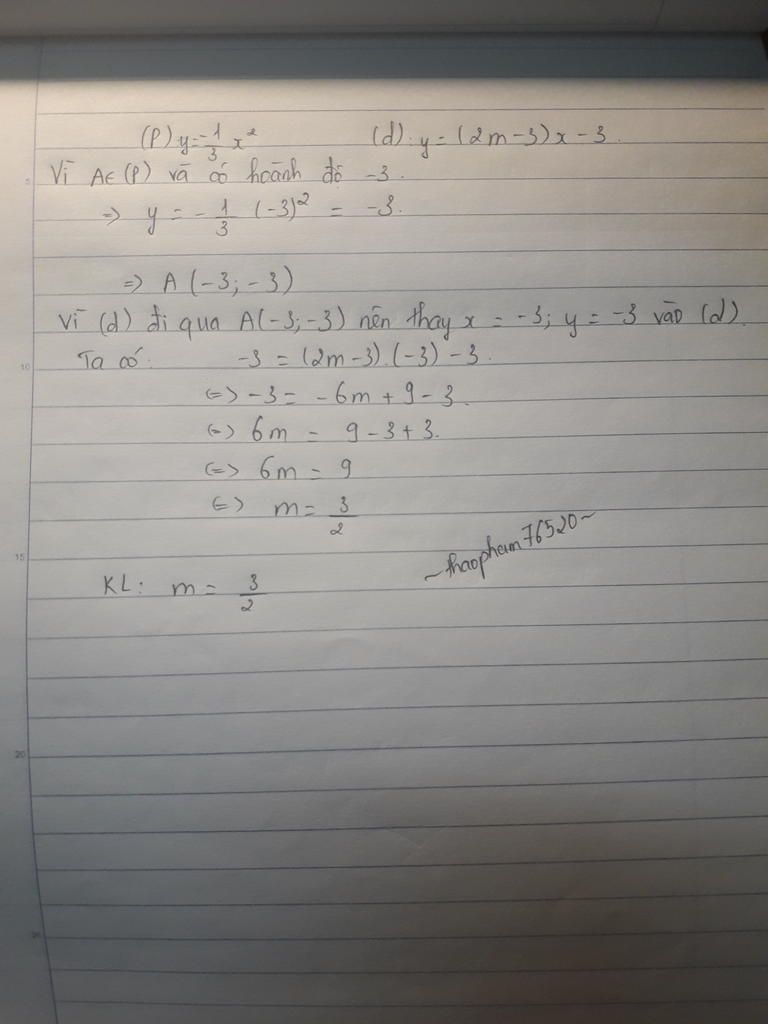 (P) y = -1/3 x² (d): y = (2m-3)x - 3.
Vì A ∈ (P) và có hoành độ -3.
=> y = -1/3 (-3)² = -3.
=> A (-3; -3)
Vì (d) đi qua A(-3; -3) nên thay x = -3; y = -3 vào (d).
Ta có: -3 = (2m-3).(-3) - 3.
<=> -3 = -6m + 9 - 3.
<=> 6m = 9 - 3 + 3.
<=> 6m = 9
<=> m = 3/2
~thaopham76520~
KL: m = 3/2
5
10
15
20